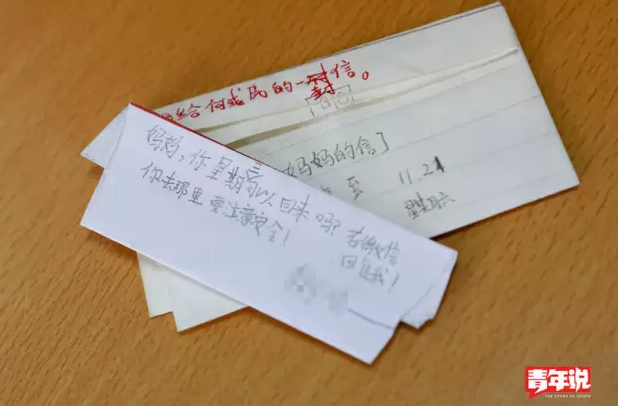 给何成民的一封信。
妈妈的信]
至
11.21
星期六
妈妈,你星期六可以回来吗?
你去那里要注意安全!
在微信
回复我!
青年说
THE STORY OF YOUTH